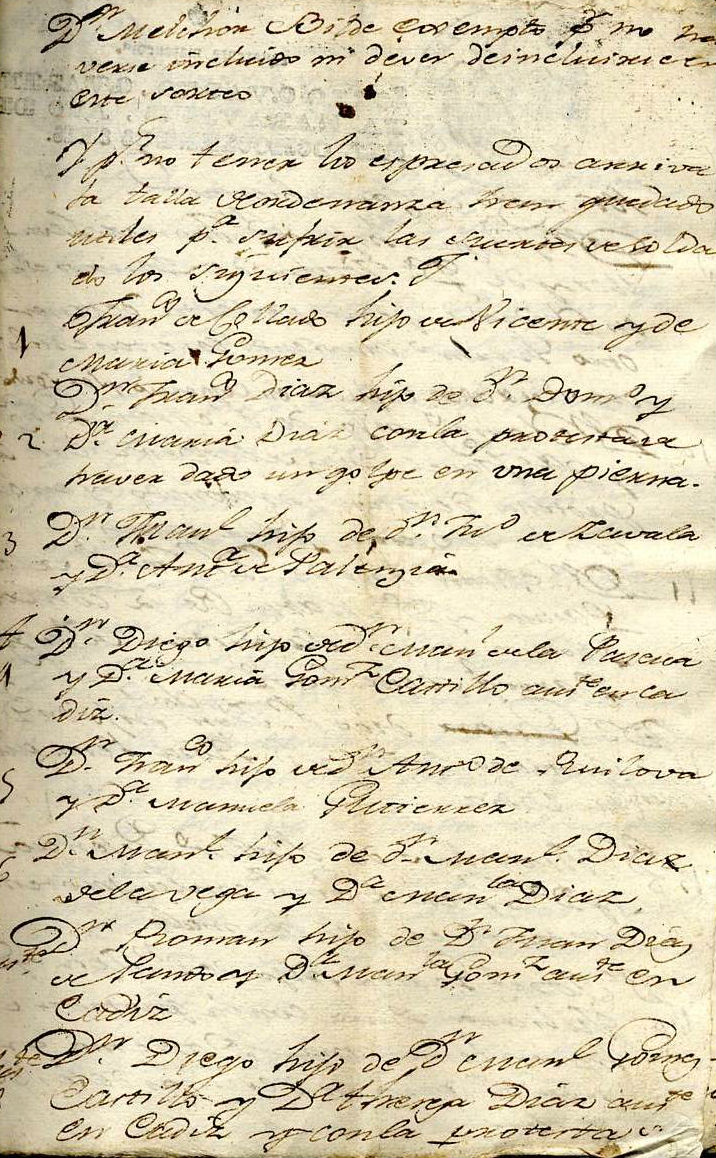 Dn Melchor Bilde exempto pr no ha
verse incluido ni dever de incluirse en
este sorteo
Y pr no tener los espresados arriva
la talla de ordenanza han quedado
utiles pa sufrir las suertes de Solda
do los siguientes.
1 Franco de Collado hijo de Vicente y de
Maria Gomez
2 Dn Franco Diaz hijo de dn Domo y
Da Maria Diaz con la protesta de
haver dado un golpe en una pierna.
3 Dn Manl hijo de dn de Zevala
y Da Anta de Palenzia
4 Dn Diego hijo de dn Manl de la
y Da Maria Gomz Castillo aute en Ca
diz.
5 Dn Franco hijo de dn Anto de Quilova
y Da Manuela Gutierrez
6 Dn Manl hijo de dn Manl Diaz
de la vega y Da Manla Diaz
Dn Roman hijo de Dn Juan Diaz
de y Da Manla Gomz aute en
Cadiz
Dn Diego hijo de Dn Manl Gomez
Castillo y Da Theresa Diaz aute
en Cadiz y con la protesta